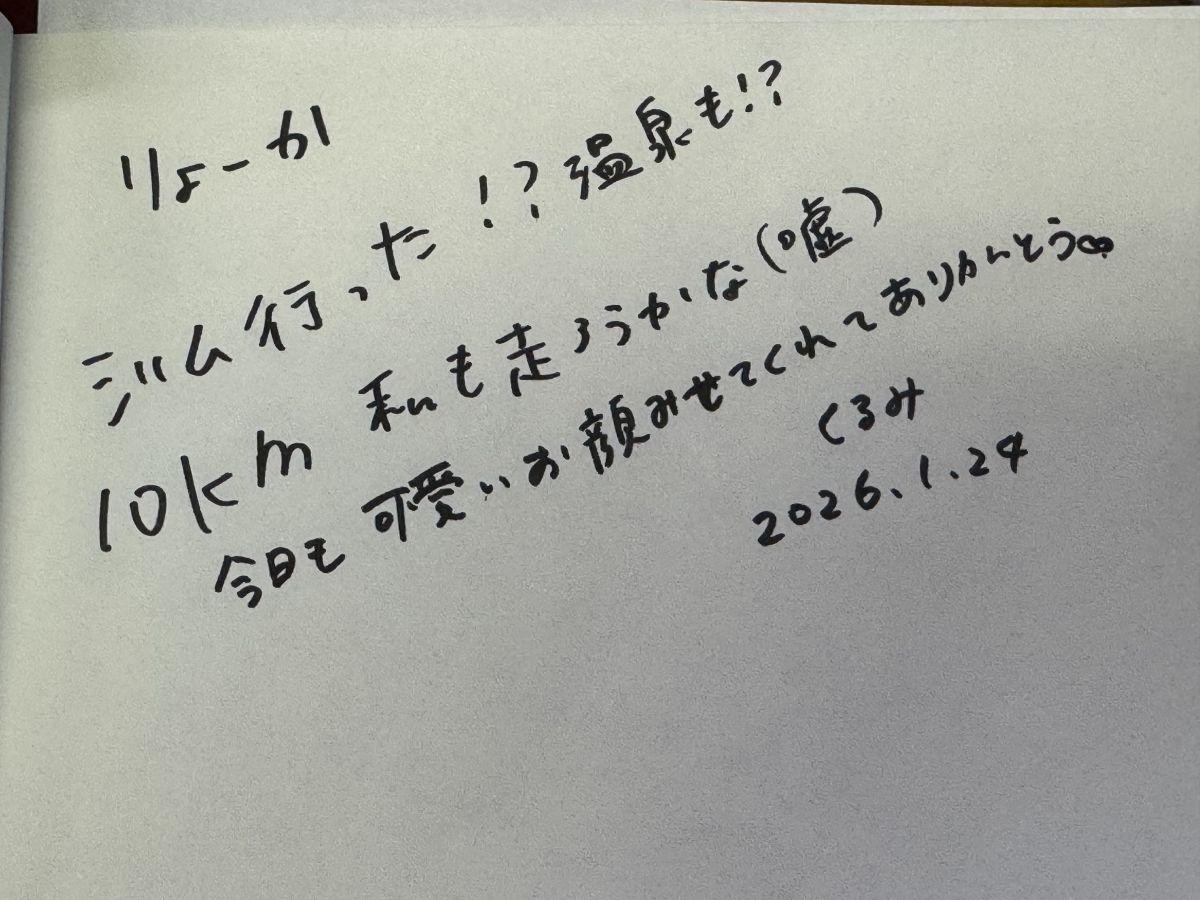 りょーか
ジム行った!?温泉も!?
10km 私も走ろうかな(嘘)
今日も可愛いお顔みせてくれてありがとう∞
くるみ
2026.1.24